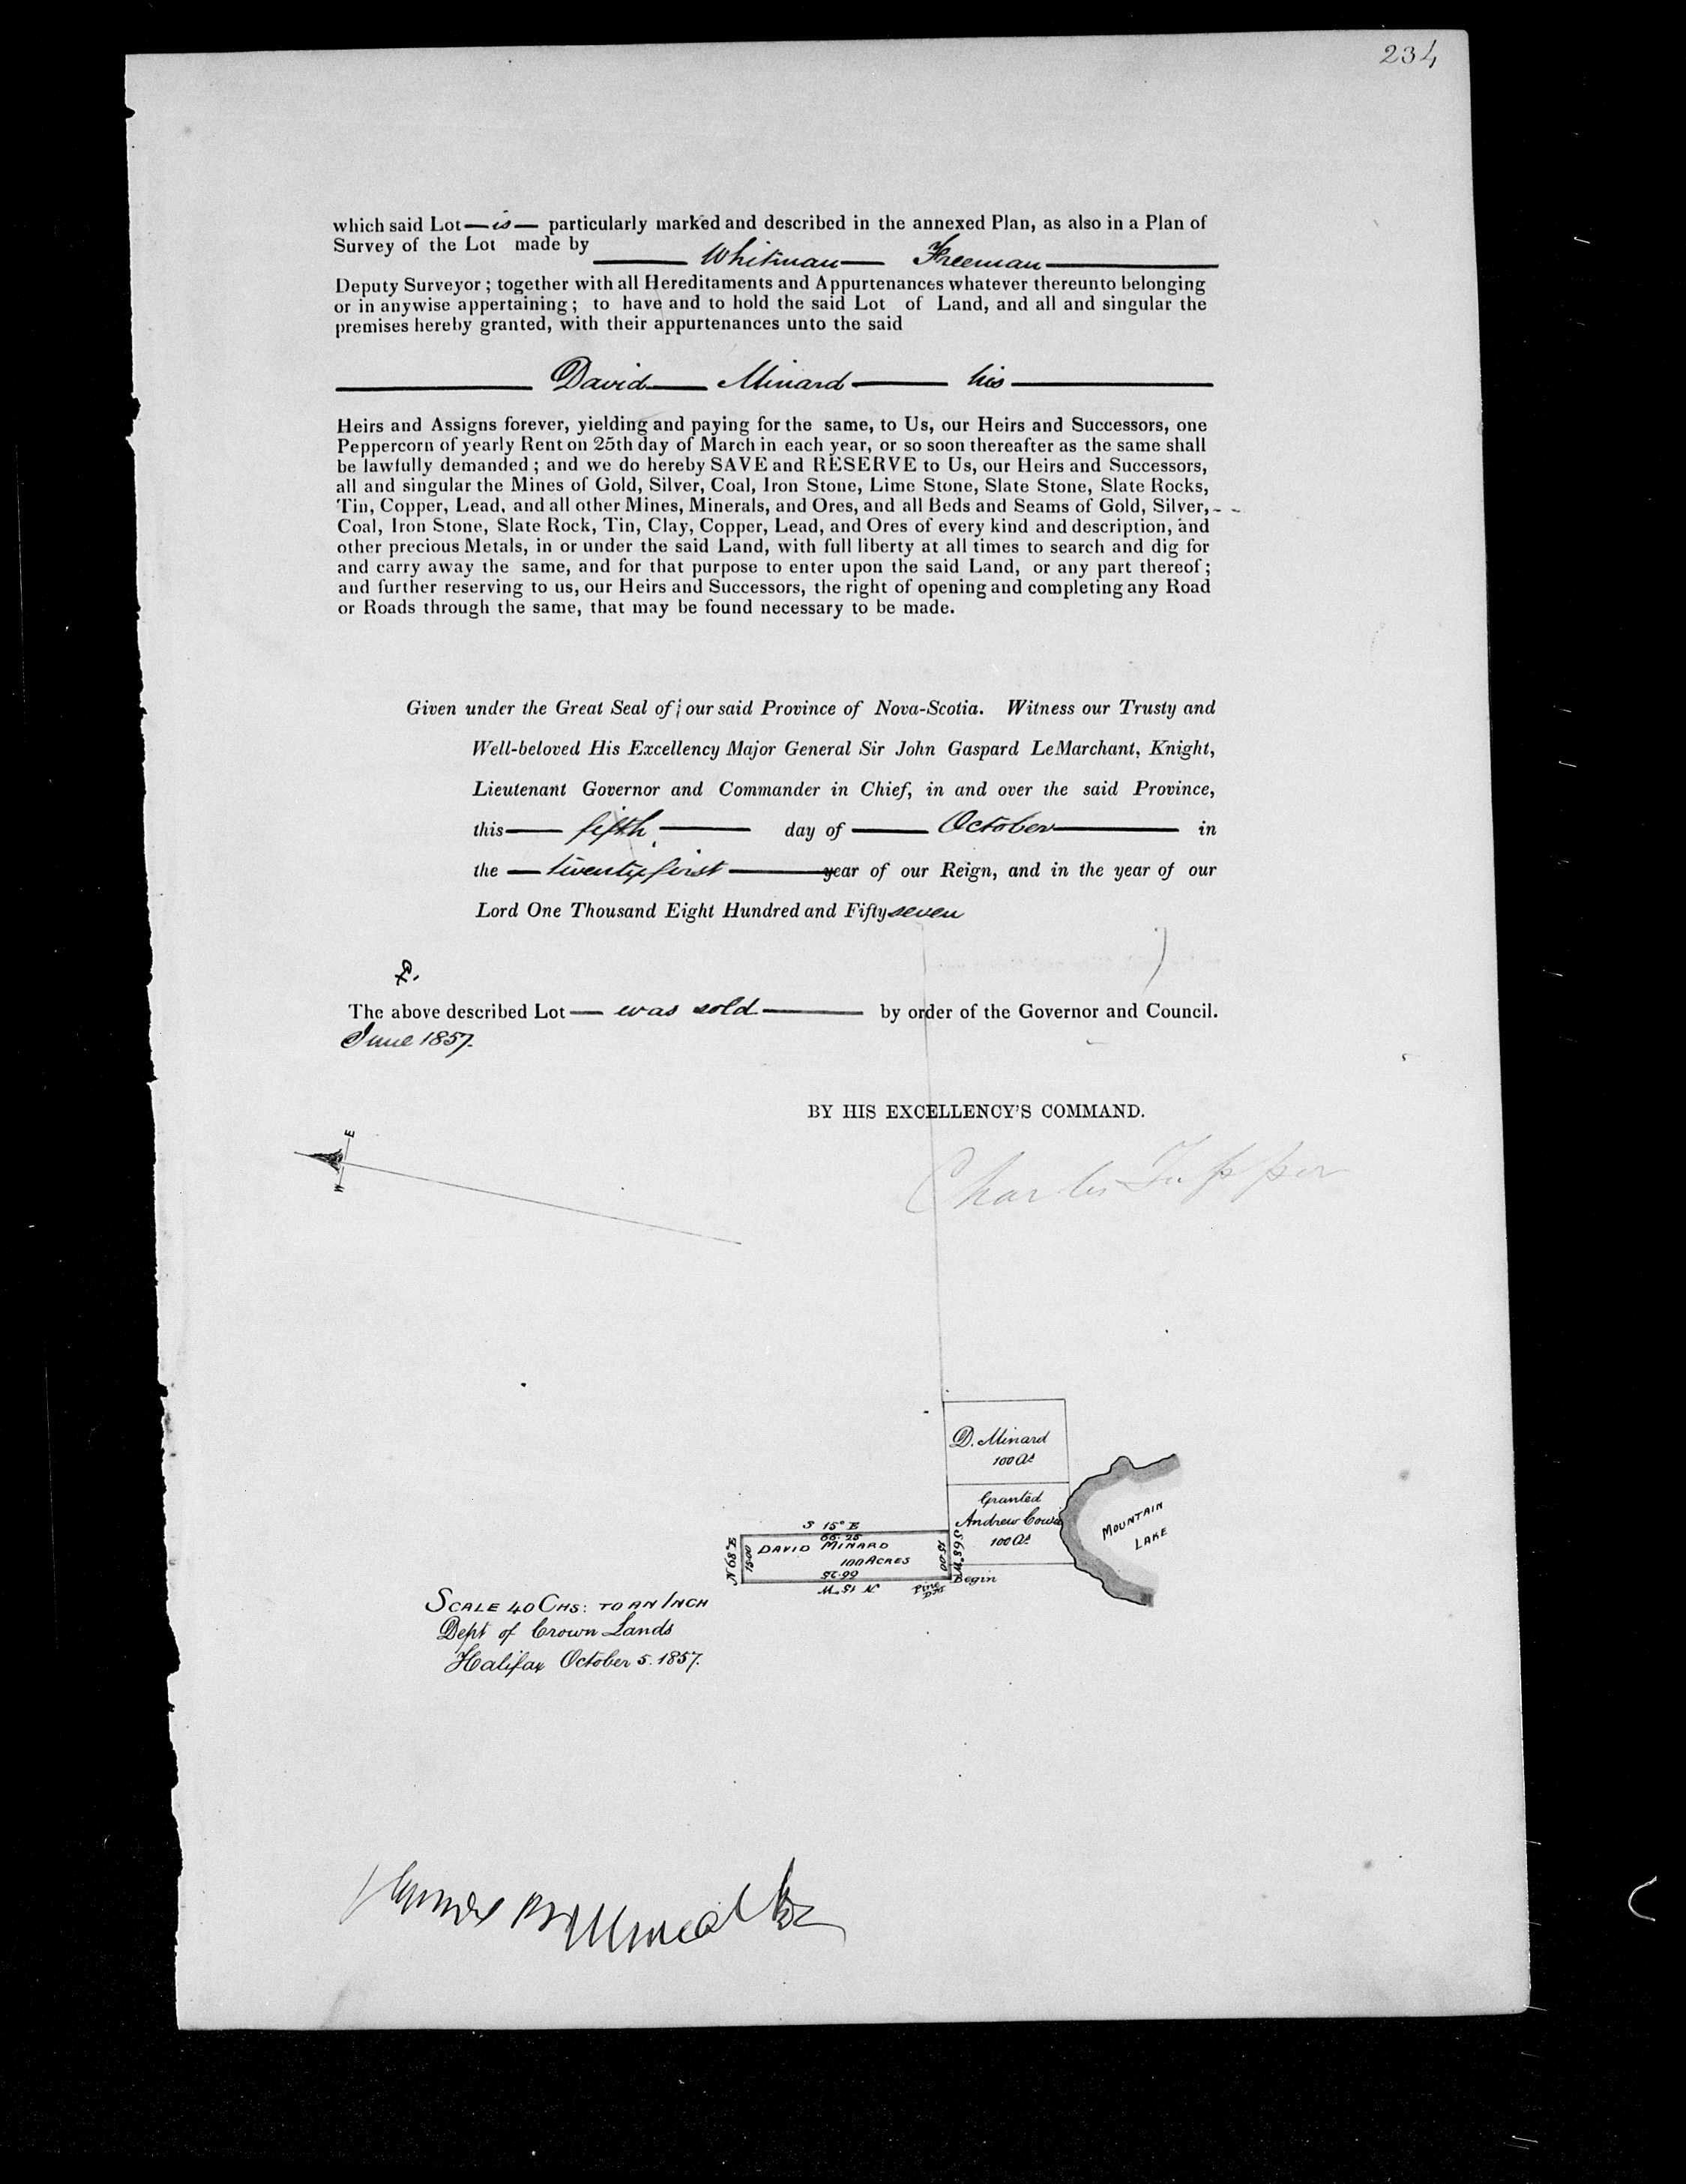 234
which said Lot is particularly marked and described in the annexed Plan, as also in a Plan of
Survey of the Lot made by Whitman Freeman
Deputy Surveyor; together with all Hereditaments and Appurtenances whatever thereunto belonging
or in anywise appertaining; to have and to hold the said Lot of Land, and all and singular the
premises hereby granted, with their appurtenances unto the said
David Minard his
Heirs and Assigns forever, yielding and paying for the same, to Us, our Heirs and Successors, one
Peppercorn of yearly Rent on 25th day of March in each year, or so soon thereafter as the same shall
be lawfully demanded; and we do hereby SAVE and RESERVE to Us, our Heirs and Successors,
all and singular the Mines of Gold, Silver, Coal, Iron Stone, Lime Stone, Slate Stone, Slate Rocks,
Tin, Copper, Lead, and all other Mines, Minerals, and Ores, and all Beds and Seams of Gold, Silver,
Coal, Iron Stone, Slate Rock, Tin, Clay, Copper, Lead, and Ores of every kind and description, and
other precious Metals, in or under the said Land, with full liberty at all times to search and dig for
and carry away the same, and for that purpose to enter upon the said Land, or any part thereof;
and further reserving to us, our Heirs and Successors, the right of opening and completing any Road
or Roads through the same, that may be found necessary to be made.
Given under the Great Seal of our said Province of Nova-Scotia. Witness our Trusty and
Well-beloved His Excellency Major General Sir John Gaspard LeMarchant, Knight,
Lieutenant Governor and Commander in Chief, in and over the said Province,
this fifth day of October in
the twenty first year of our Reign, and in the year of our
Lord One Thousand Eight Hundred and Fifty seven
£.
The above described Lot was sold by order of the Governor and Council.
June 1857.
BY HIS EXCELLENCY'S COMMAND.
E
Charles Tupper
D. Minard
100 As
Granted
Andrew Cowie
100 As
MOUNTAIN
LAKE
S 15° E
66.25
DAVID MINARD
100 ACRES
66.25
N 15° W
N 68° E
15.00
15.00
S 68° W
Pine
Begin
SCALE 40 CHS: TO AN INCH
Dept of Crown Lands
Halifax October 5. 1857.